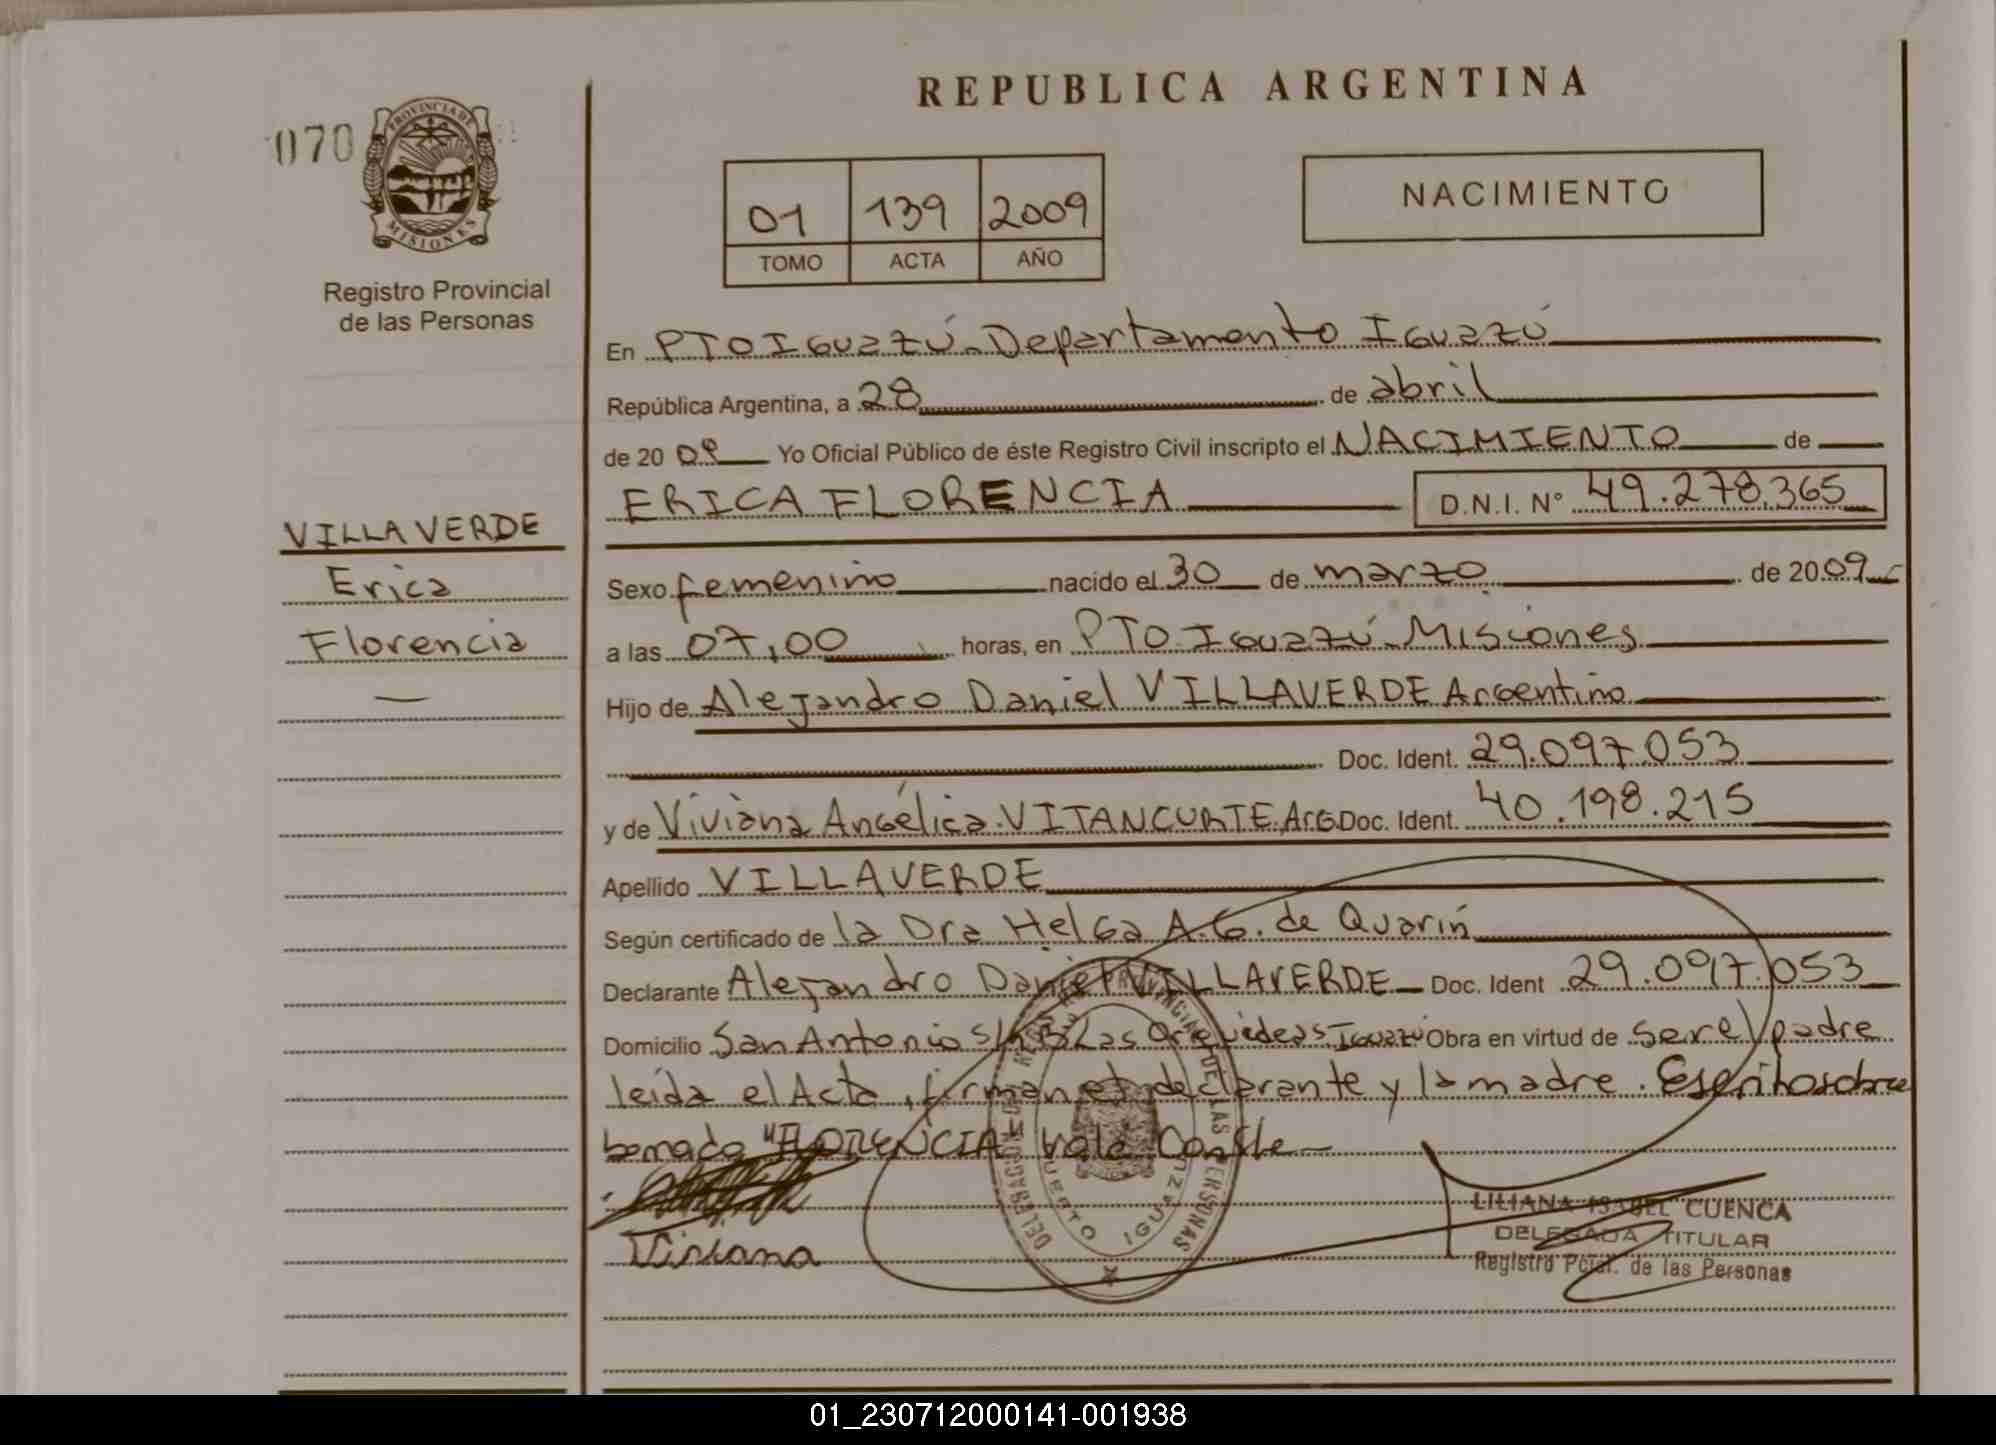 REPUBLICA ARGENTINA
070
PROVINCIA DE
MISIONES
Registro Provincial
de las Personas
01 139 2009
TOMO ACTA AÑO
NACIMIENTO
En PTO IGUAZÚ - Departamento IGUAZÚ
República Argentina, a 28 de abril
de 20 09 Yo Oficial Público de éste Registro Civil inscripto el NACIMIENTO de
ERICA FLORENCIA D.N.I. N° 49.278.365
VILLAVERDE
Erica
Florencia
Sexo femenino nacido el 30 de marzo de 2009
a las 07,00 horas, en PTO. IGUAZÚ - Misiones
Hijo de Alejandro Daniel VILLAVERDE Argentino
Doc. Ident. 29.097.053
y de Viviana Angélica VITANCURTE. Arg Doc. Ident. 40.198.215
Apellido VILLAVERDE
Según certificado de la Dra Helga A. G. de Quarín
Declarante Alejandro Daniel VILLAVERDE Doc. Ident 29.097.053
Domicilio San Antonio S/N B Las Orquideas Iguazú Obra en virtud de ser el padre
leída el Acta, firman el declarante y la madre. Escrito sobre
borrado "FLORENCIA" Vale Conste
Viviana
DELEGACION DE REGISTRO PROVINCIAL DE LAS PERSONAS
PUERTO IGUAZU
LILIANA ISABEL CUENCA
DELEGADA TITULAR
Registro Pcial. de las Personas
01_230712000141-001938